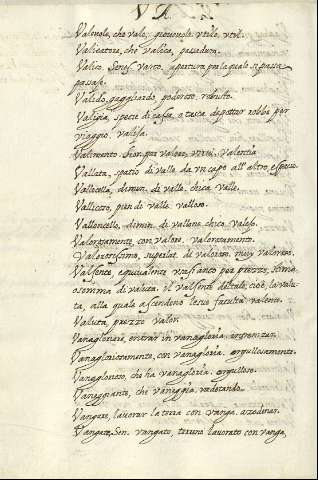 VA.
Valevole, che vale, giovevole vtile, vtil.
Valicatore, che valica, passador.
Valico, Senes. varco, apertura per la quale si passa
passase.
Valido, gagliardo, poderoso, robusto.
Valigia, specie di cassa, o tasca da portar robbe per
viaggio. valisa.
Valimento, valore, virtù, Valentia
Vallata, spatio di valle da vn capo all'altro,
Vallicella, dimin. di valle, chica valle.
Vallicoso, pien di valle, valloso.
Valloncello, dimin. di vallone, chico valejo.
Valorosamente, con valore, valorosamente.
Valorosissimo, superlat. di valoroso, muy valoroso.
Valsente, equivalente vsasi anco per prezzo, stima
o somma di valuta. il valsente del tale, cioè, la valu-
ta, alla quale ascendono le sue facultà valente.
Valuta, prezzo valor.
Vanagloriare, entrar in vanagloria.
Vanagloriosamente, con vanagloria. orgullosamente.
Vanaglorioso, che ha vanagloria. orgulloso.
Vaneggiante, che vaneggia.
Vangare, lavorar la terra con vanga. azadonar.
Vangato, Sen. vangato, terreno lavorato con vanga,